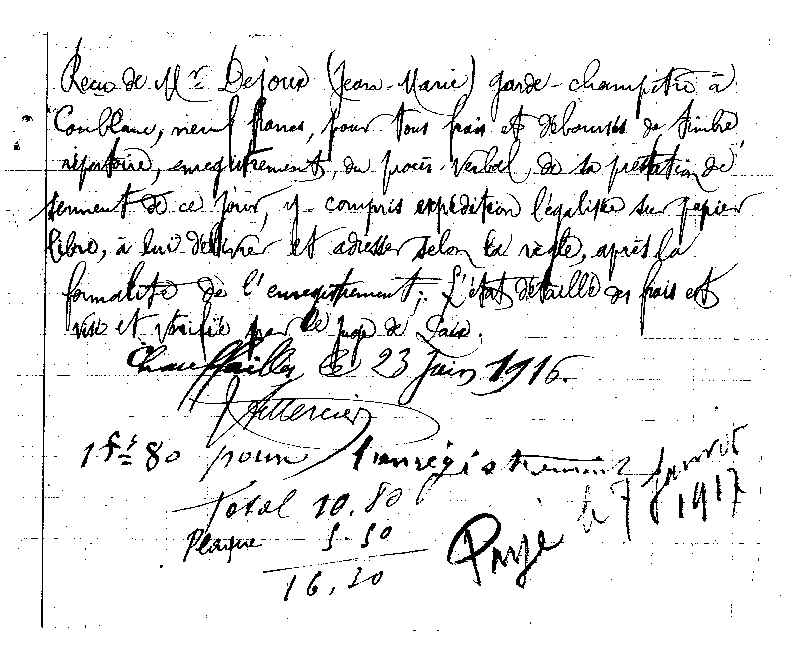 Reçu de Mr Dejoux (Jean-Marie) garde-champêtre à
Coublanc, neuf francs, pour tous frais et déboursés de timbre,
répertoire, enregistrement, du procès-verbal, de sa prestation de
serment de ce jour, y compris expédition légalisée sur papier
libre, à lui délivrer et adresser selon la règle, après la
formalité de l'enregistrement; L'état détaillé des frais est
visé et vérifié par le juge de Paix.
Chauffailles, le 23 Juin 1916.
1 fr 80 pour l'enregistrement
Total 10.80
Plaque 5.50
16,30
Payé le 7 Janvier
1917